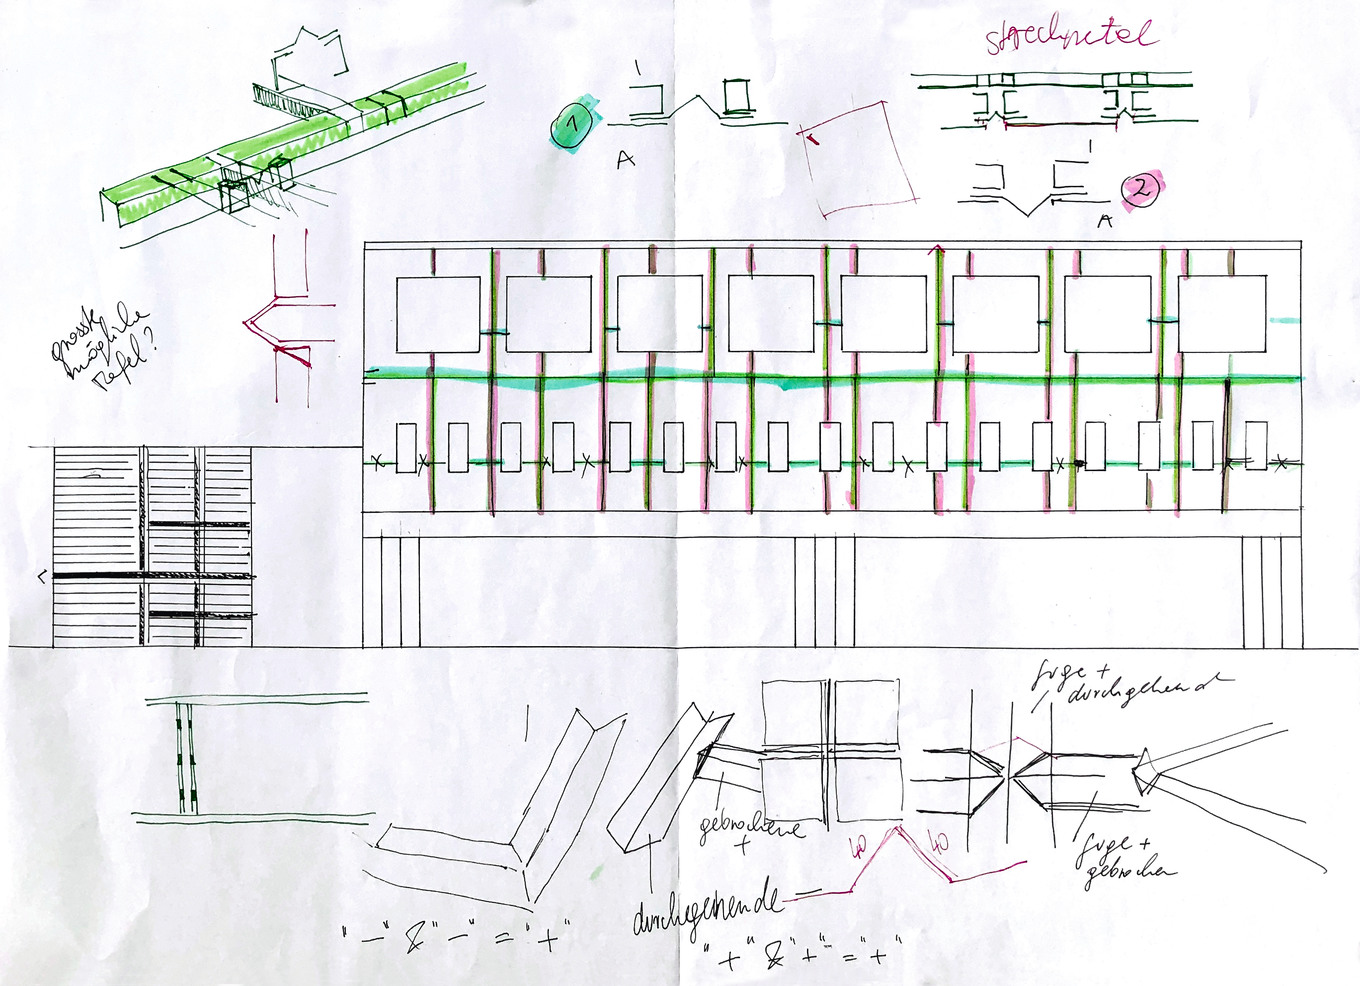 streckmetal
1
A
2
A
grösste
mögliche
Tafel?
fuge +
durchgehend
gebrochene
+
40
40
fuge +
gebrochen
durchgehende
"-" & "-" = "+"
"+" & "+" = "+"